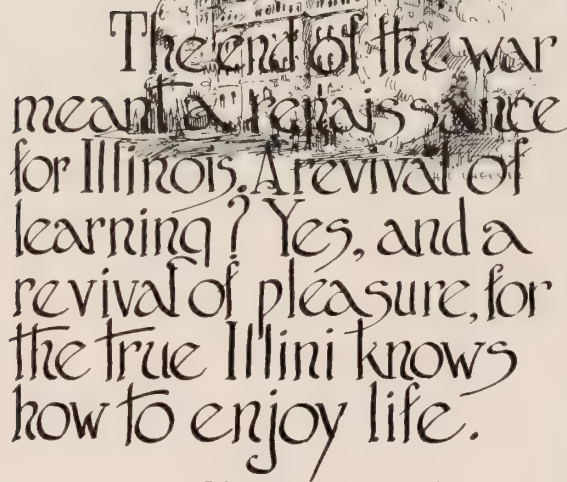 The end of the war
meant a renaissance
for Illinois. A revival of
learning? Yes, and a
revival of pleasure, for
the true Illini knows
how to enjoy life.